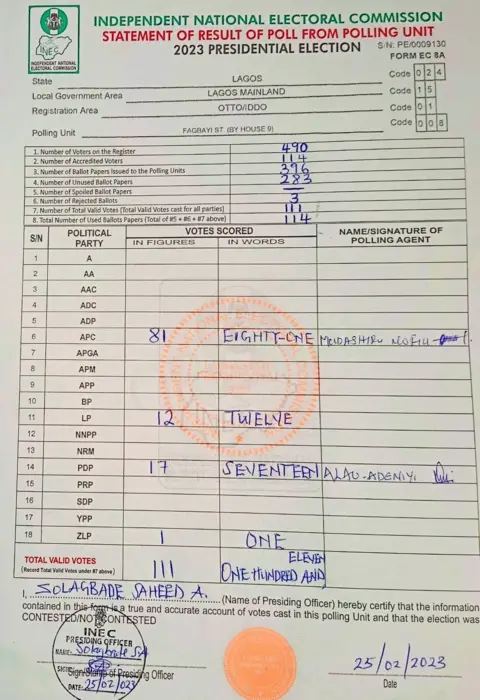 INDEPENDENT NATIONAL ELECTORAL COMMISSION
STATEMENT OF RESULT OF POLL FROM POLLING UNIT
2023 PRESIDENTIAL ELECTION S/N: PE/0009130
FORM EC 8A
INEC
INDEPENDENT NATIONAL
ELECTORAL COMMISSION
State LAGOS Code 0 2 4
Local Government Area LAGOS MAINLAND Code 1 5
Registration Area OTTO/IDDO Code 0 1
Polling Unit FAGBAYI ST. (BY HOUSE 9) Code 0 0 8
1. Number of Voters on the Register 490
2. Number of Accredited Voters 114
3. Number of Ballot Papers Issued to the Polling Units 396
4. Number of Unused Ballot Papers 283
5. Number of Spoiled Ballot Papers —
6. Number of Rejected Ballots 3
7. Number of Total Valid Votes (Total Valid Votes cast for all parties) 111
8. Total Number of Used Ballots Papers (Total of #5 + #6 + #7 above) 114
S/N POLITICAL PARTY VOTES SCORED NAME/SIGNATURE OF POLLING AGENT
IN FIGURES IN WORDS
1 A
2 AA
3 AAC
4 ADC
5 ADP
6 APC 81 EIGHTY-ONE
7 APGA
8 APM
9 APP
10 BP
11 LP 12 TWELVE
12 NNPP
13 NRM
14 PDP 17 SEVENTEEN ALAO-ADENIYI
15 PRP
16 SDP
17 YPP
18 ZLP 1 ONE
TOTAL VALID VOTES 111 ONE HUNDRED AND ELEVEN
(Record Total Valid Votes under #7 above)
I, SOLAGBADE SAHEED A. (Name of Presiding Officer) hereby certify that the information
contained in this form is a true and accurate account of votes cast in this polling Unit and that the election was
CONTESTED/NOT CONTESTED
INEC
PRESIDING OFFICER
NAME: Solagbade SA
SIGN:
Sign/Stamp of Presiding Officer
DATE: 25/02/023
25/02/2023
Date